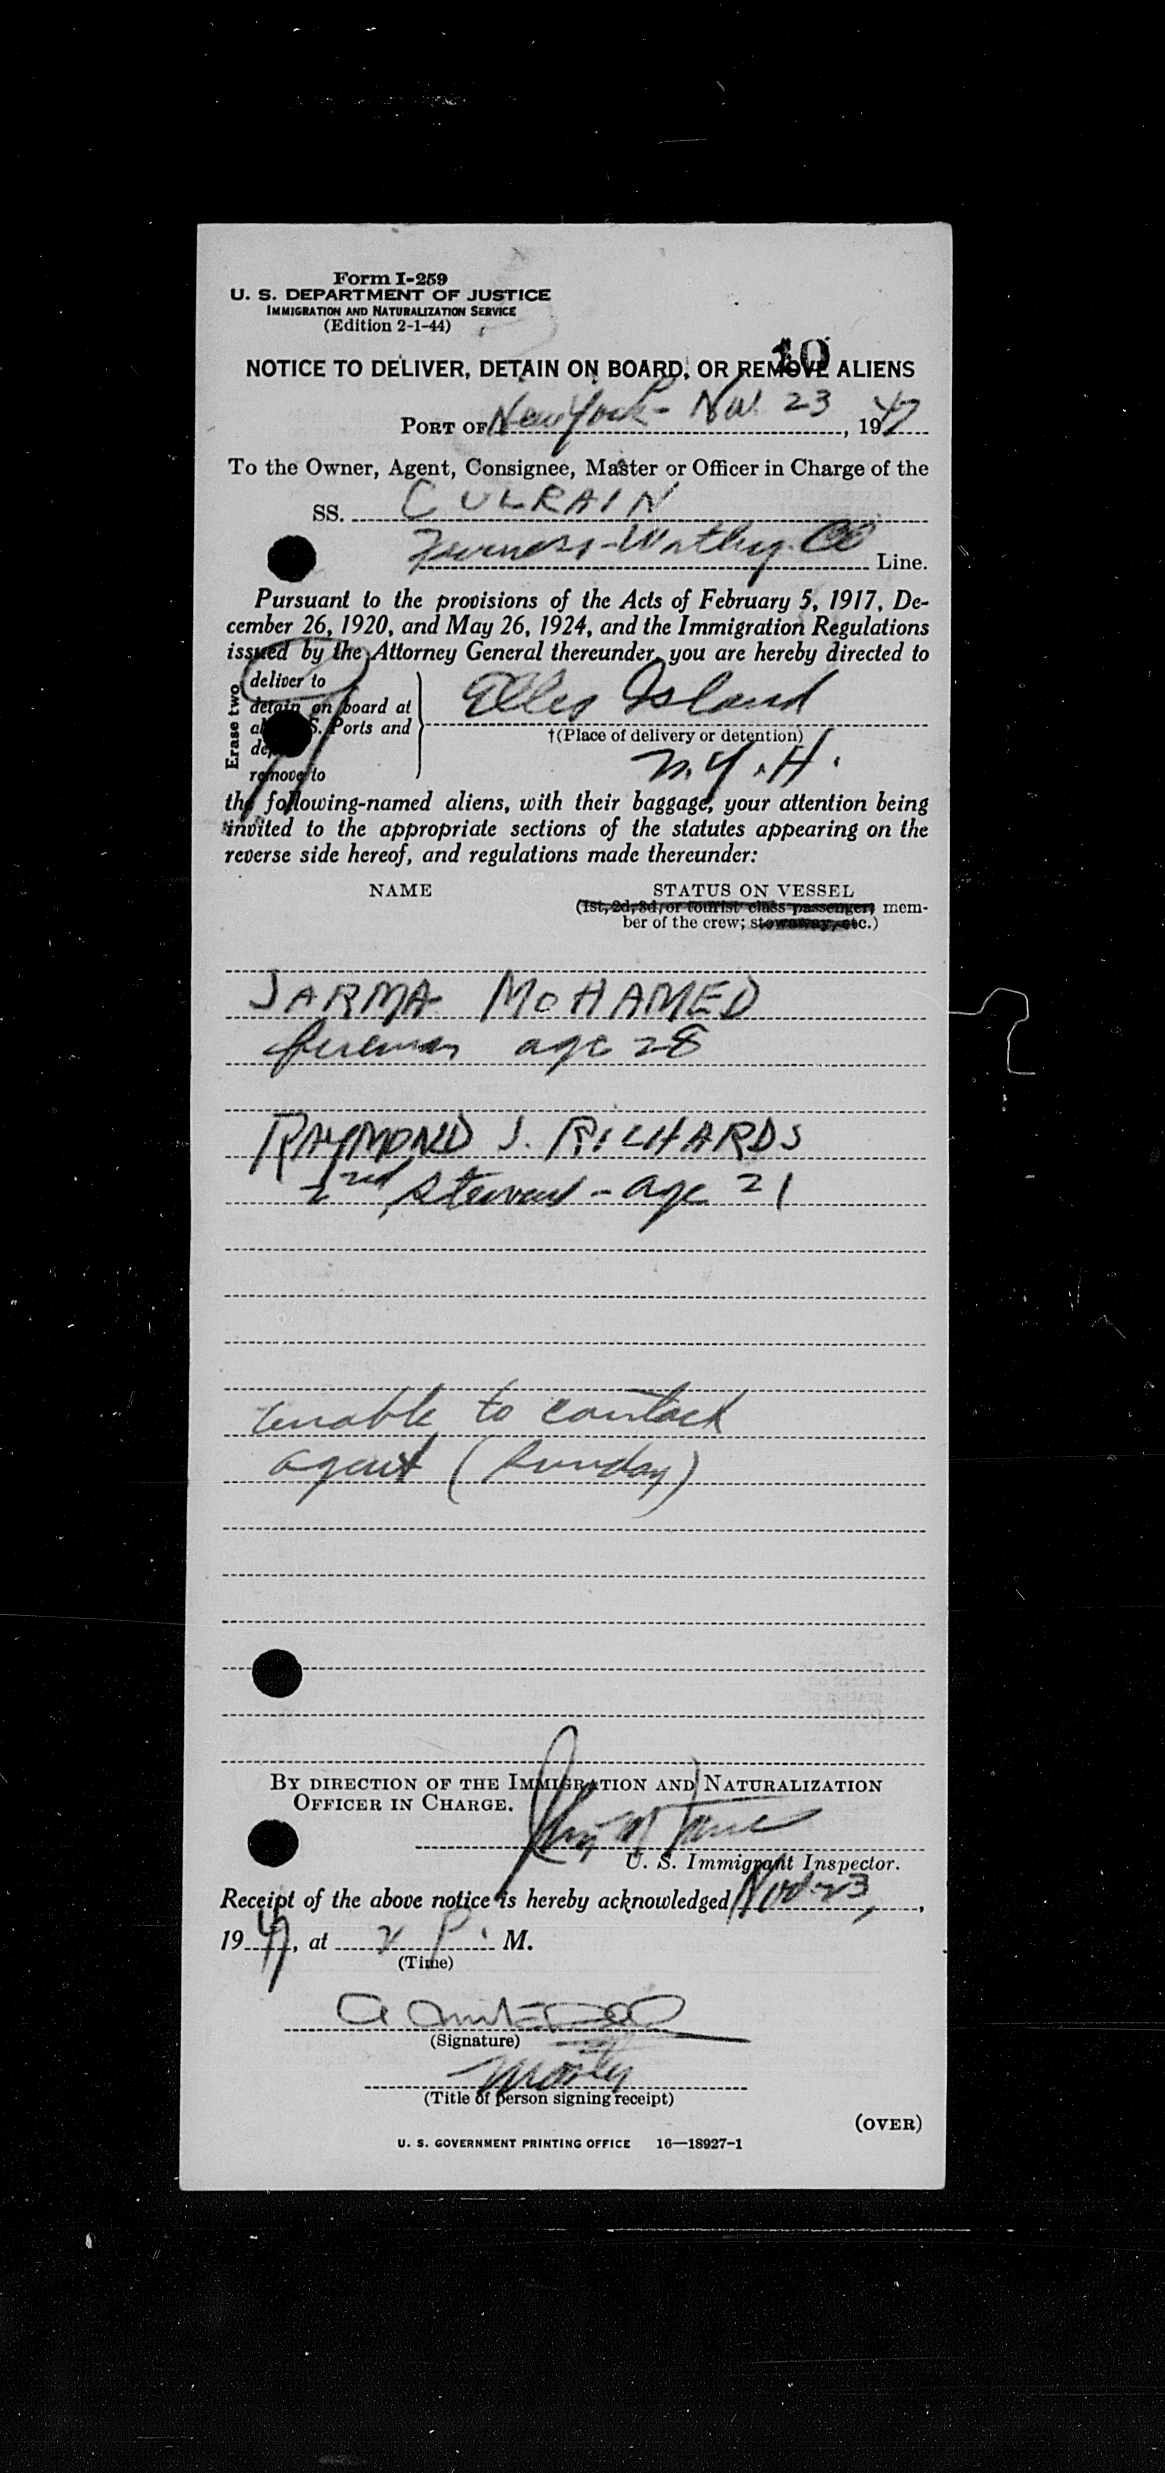 Form I-259
U. S. DEPARTMENT OF JUSTICE
IMMIGRATION AND NATURALIZATION SERVICE
(Edition 2-1-44)
10
NOTICE TO DELIVER, DETAIN ON BOARD, OR REMOVE ALIENS
PORT OF New York - Nov. 23, 1947
To the Owner, Agent, Consignee, Master or Officer in Charge of the
SS. CULRAIN
Furness-Withy Co Line.
Pursuant to the provisions of the Acts of February 5, 1917, De-
cember 26, 1920, and May 26, 1924, and the Immigration Regulations
issued by the Attorney General thereunder, you are hereby directed to
Erase two
deliver to
detain on board at
all S. Ports and
remove to
Ellis Island
†(Place of delivery or detention)
N.Y.H.
the following-named aliens, with their baggage, your attention being
invited to the appropriate sections of the statutes appearing on the
reverse side hereof, and regulations made thereunder:
NAME STATUS ON VESSEL
(1st, 2d, 3d, or tourist class passenger; mem-
ber of the crew; stowaway, etc.)
JARMA MOHAMED
fireman age 28
RAYMOND J. RICHARDS
2nd steward - age 21
unable to contact
agent (Sunday)
BY DIRECTION OF THE IMMIGRATION AND NATURALIZATION
OFFICER IN CHARGE.
U. S. Immigrant Inspector.
Receipt of the above notice is hereby acknowledged Nov 23,
1947, at 2 P. M.
(Time)
(Signature)
(Title of person signing receipt)
(OVER)
U. S. GOVERNMENT PRINTING OFFICE 16—18927-1